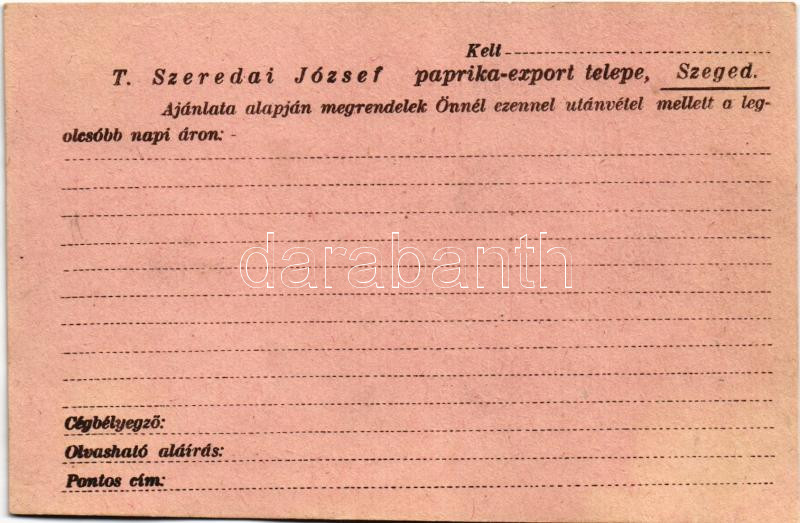 Kelt
T. Szeredai József paprika-export telepe, Szeged.
Ajánlata alapján megrendelek Önnél ezennel utánvétel mellett a leg-
olcsóbb napi áron: -
darabanth
Cégbélyegző:
Olvasható aláírás:
Pontos cím: